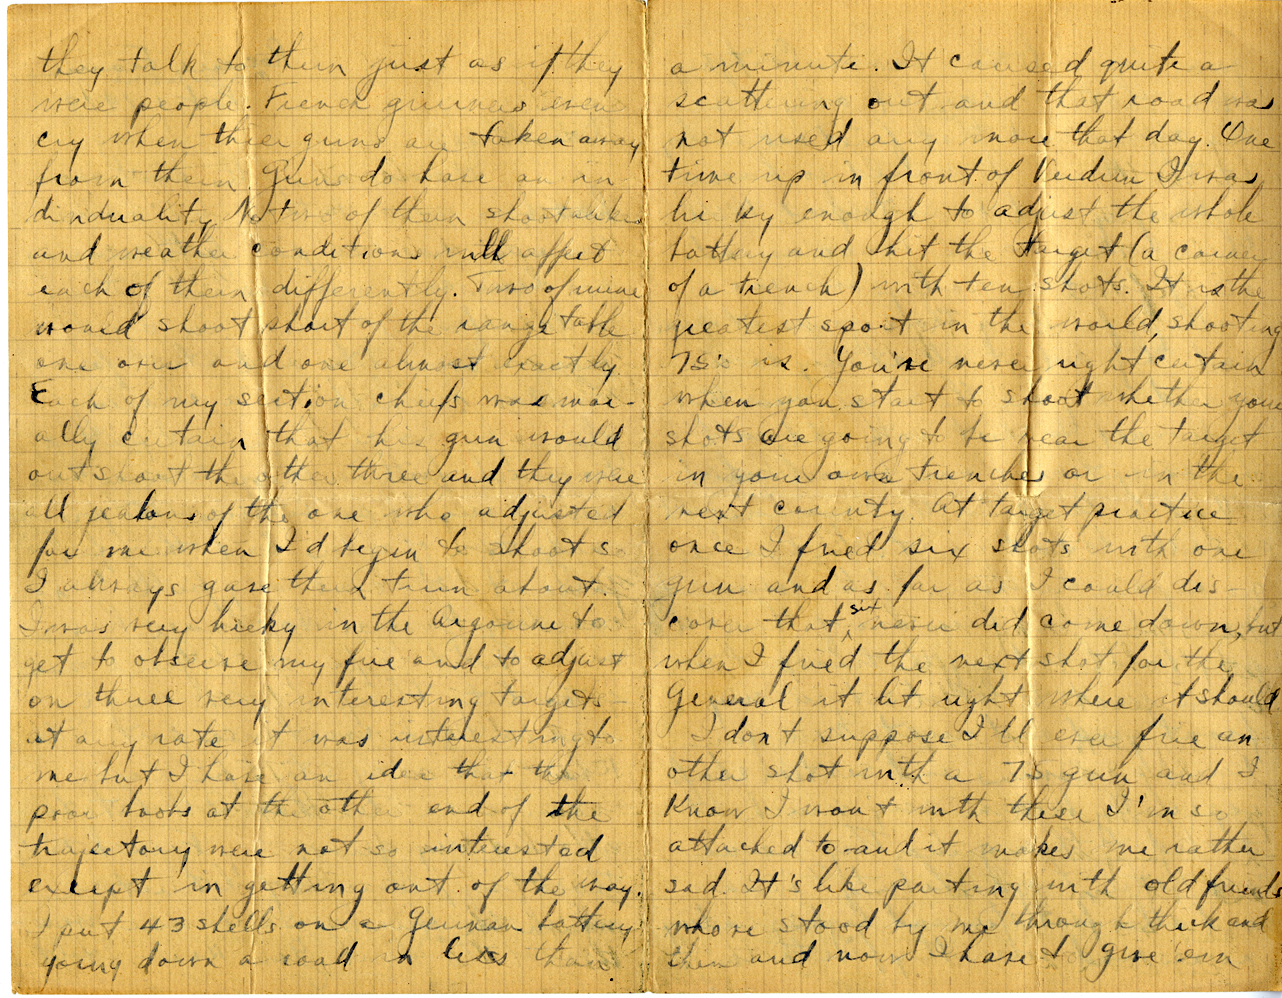 they talk to them just as if they
were people. French gunners even
cry when their guns are taken away
from them. Guns do have an in
dividuality. No two of them shoot alike
and weather conditions will affect
each of them differently. Two of mine
would shoot short of the range table
one over and one almost exactly.
Each of my section chiefs was mor-
ally certain that his gun would
outshoot the other three and they were
all jealous of the one who adjusted
for me when I'd begin to shoot so
I always gave them turn about.
I was very lucky in the Argonne to
get to observe my fire and to adjust
on three very interesting targets-
at any rate it was interesting to
me but I have an idea that the
poor boobs at the other end of the
trajectory were not so interested
except in getting out of the way.
I put 43 shells on a German battery
going down a road in less than
a minute. It caused quite a
scattering out and that road was
not used any more that day. One
time up in front of Verdun I was
lucky enough to adjust the whole
battery and hit the target (a corner
of a trench) with ten shots. It is the
greatest sport in the world, shooting
75's is. You're never right certain
when you start to shoot whether your
shots are going to be near the target
in your own trenches or in the
next county. At target practice
once I fired six shots with one
gun and as far as I could dis-
cover that six never did come down, but
when I fired the next shot for the
General it lit right where it should
I don't suppose I'll ever fire an
other shot with a 75 gun and I
know I wont with these I'm so
attached to and it makes me rather
sad. It's like parting with old friends
who've stood by me through thick and
thin and now I have to give 'em